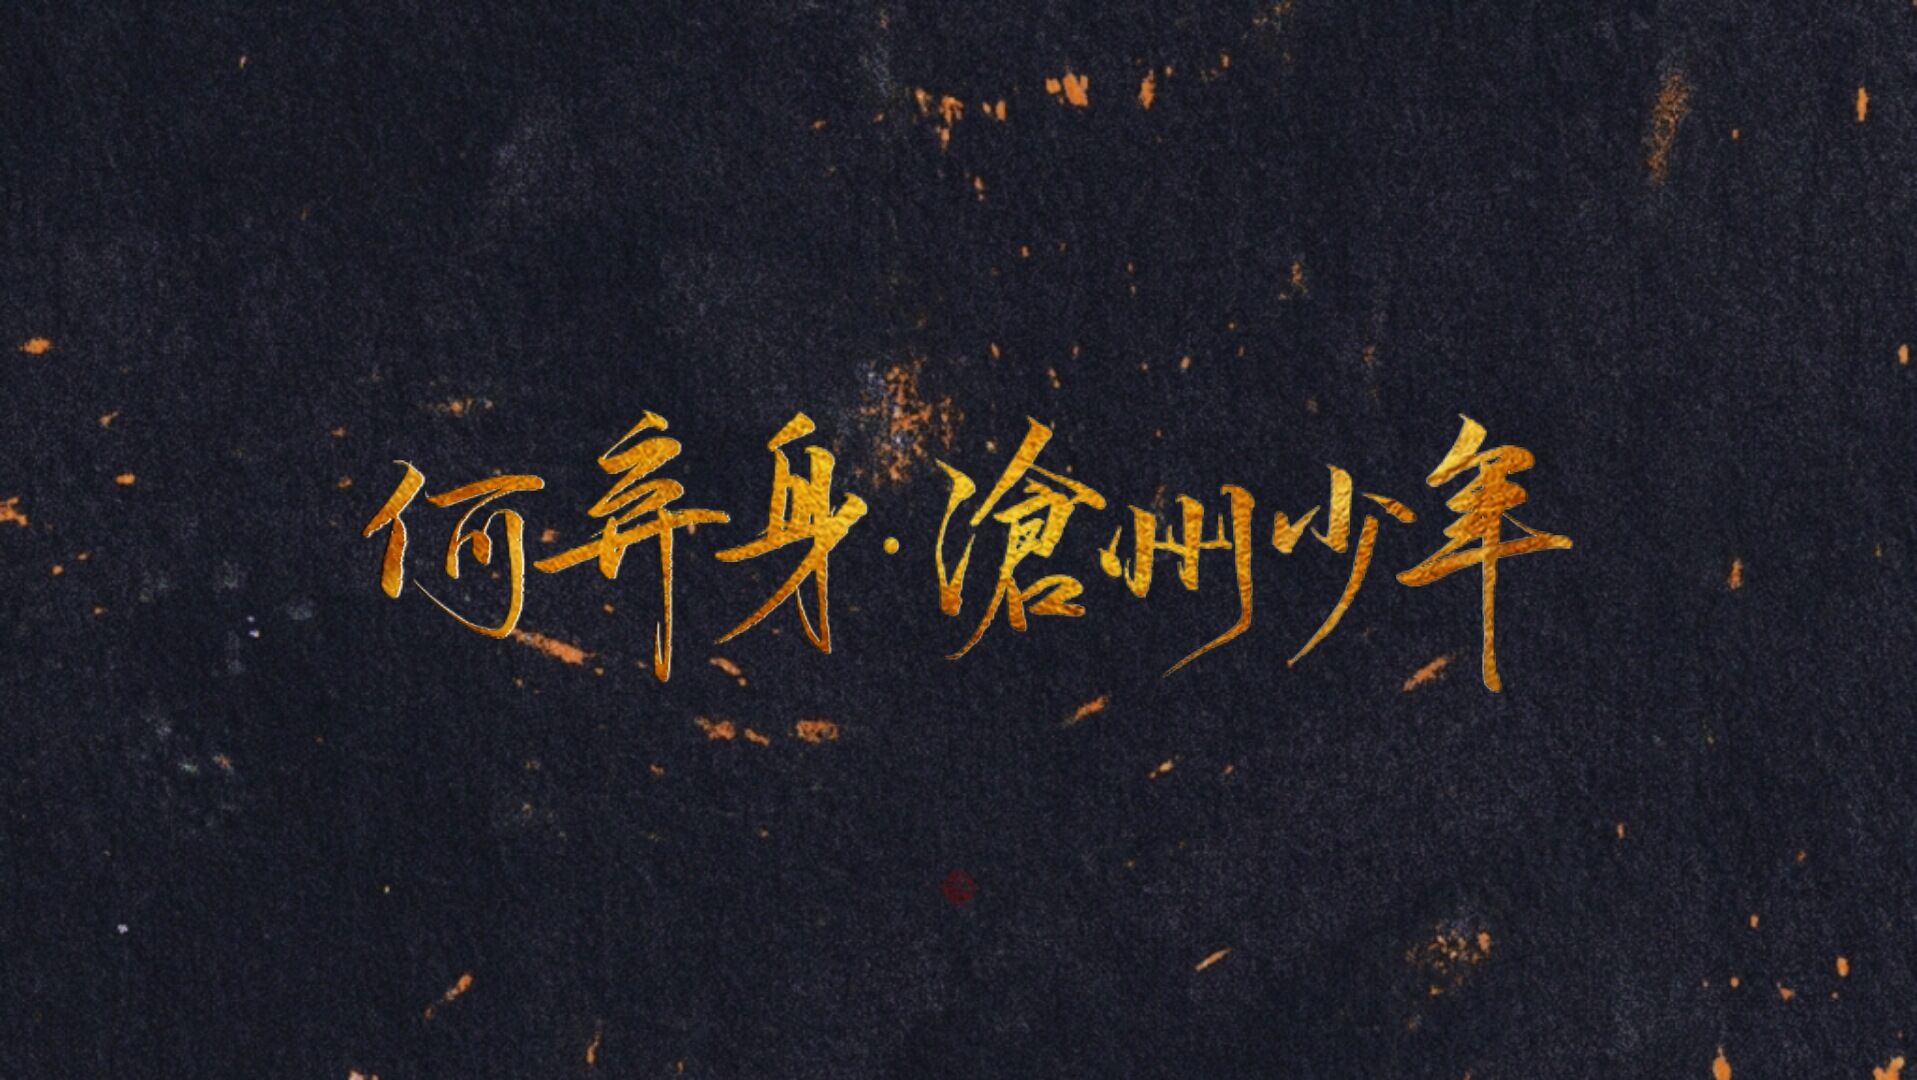 何弃身·滄州少年